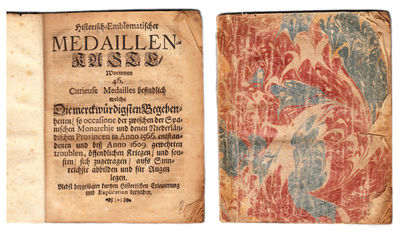 Historisch-Emblematischer
MEDAILLEN-
KASTE,
Worinnen
46.
Curieuse Medailles befindlich
welche
Die merckwürdigsten Begeben-
heiten / so occasione der zwischen der Spa-
nischen Monarchie und denen Niederlän-
dischen Provincien in Anno 1566. entstan-
denen und biß Anno 1609. gewehrten
troublen, öffendlichen Kriegen / und son-
sten / sich zugetragen / auffs Sinn-
reichste abbilden und für Augen
legen.
Nebst beygefügter kurtzen Historischen Erleuterung
und Explication derselben.